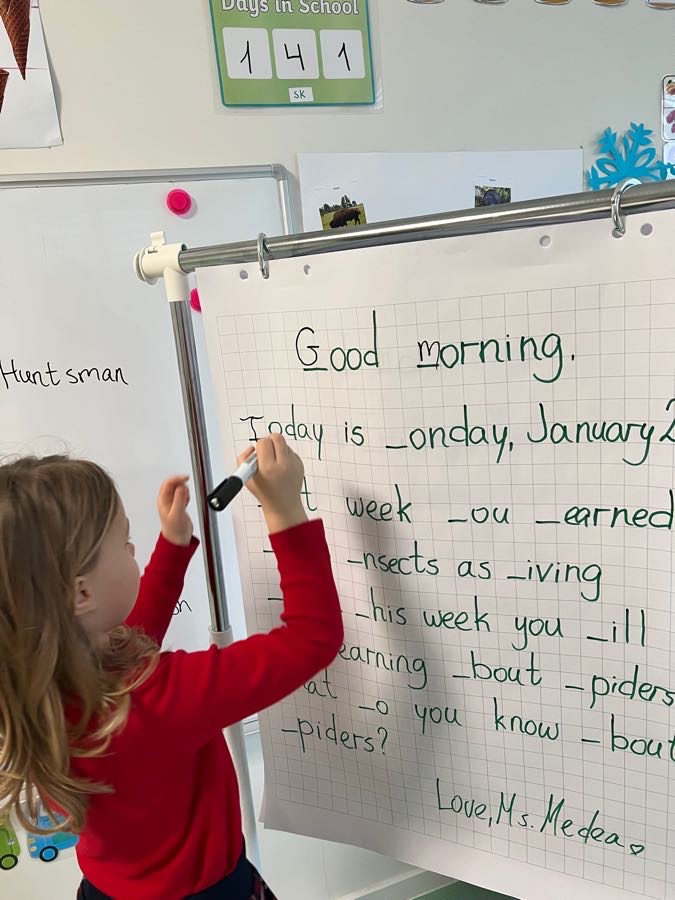 Days in School
1 4 1
SK
Huntsman
Good morning.
Today is _onday, January 2
week _ou _earned
_nsects as _iving
_his week you _ill
earning _bout _piders
at _o you know _bout
_piders?
Love, Ms. Medea